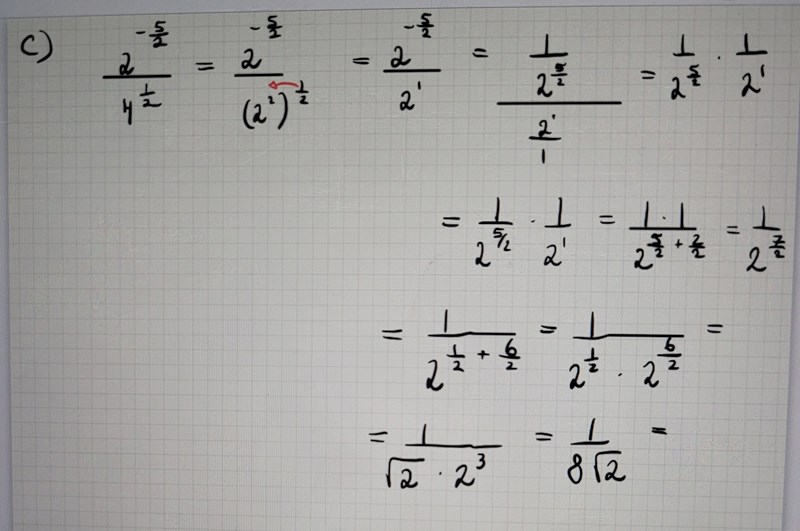 c) 2^(-5/2) / 4^(1/2) = 2^(-5/2) / (2^2)^(1/2) = 2^(-5/2) / 2^1 = (1 / 2^(5/2)) / (2^1 / 1) = 1 / 2^(5/2) · 1 / 2^1
= 1 / 2^(5/2) · 1 / 2^1 = (1 · 1) / 2^(5/2 + 2/2) = 1 / 2^(7/2)
= 1 / 2^(1/2 + 6/2) = 1 / (2^(1/2) · 2^(6/2)) =
= 1 / (√2 · 2^3) = 1 / (8√2) =